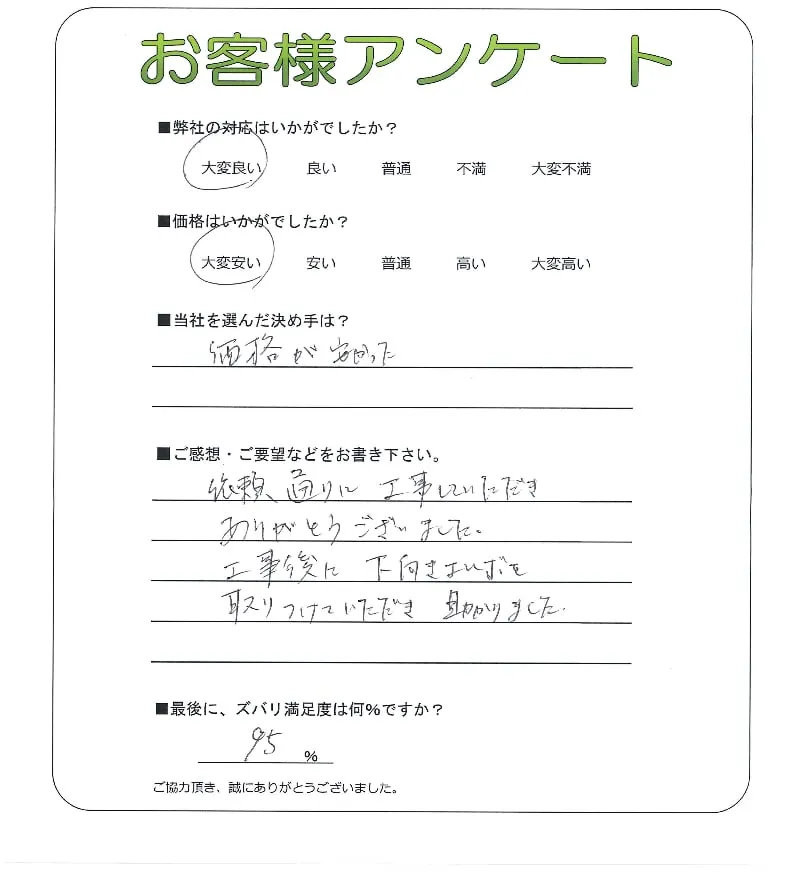 お客様アンケート
■弊社の対応はいかがでしたか？
大変良い 良い 普通 不満 大変不満
■価格はいかがでしたか？
大変安い 安い 普通 高い 大変高い
■当社を選んだ決め手は？
価格が安かった
■ご感想・ご要望などをお書き下さい。
依頼通りに工事していただき
ありがとうございました。
工事後に下向き
取りつけていただき助かりました。
■最後に、ズバリ満足度は何％ですか？
95 %
ご協力頂き、誠にありがとうございました。